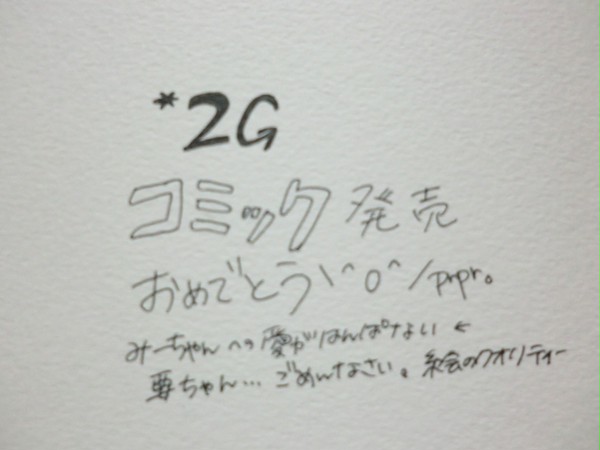 *2G
コミック 発売
おめでとう\^o^/prpr。
みーちゃんへの愛がはんぱない←
要ちゃん…ごめんなさい。絵のクオリティー